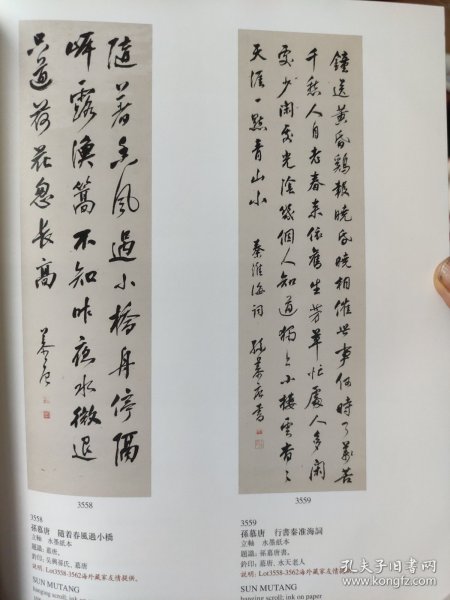 隨著春風過小橋舟停隔
岸露漁篙不知昨夜水微退
只道荷花忽長高
慕唐
3558
鐘送黃昏鷄報曉昏曉相催世事何時了萬苦
千愁人自老春來依舊生芳草忙處人多閑
處少閑處光陰幾個人知道獨上小樓雲杳々
天涯一點青山小
秦淮海詞 孫慕唐書
3559
3558
孫慕唐 隨着春風過小橋
立軸 水墨紙本
題識：慕唐。
鈐印：吳興孫氏、慕唐
說明：Lot3558-3562海外藏家友情提供。
SUN MUTANG
hanging scroll; ink on paper
3559
孫慕唐 行書秦淮海詞
立軸 水墨紙本
題識：孫慕唐書。
鈐印：慕唐、水天老人
說明：Lot3558-3562海外藏家友情提供。
SUN MUTANG
hanging scroll; ink on paper
孔夫子旧书网